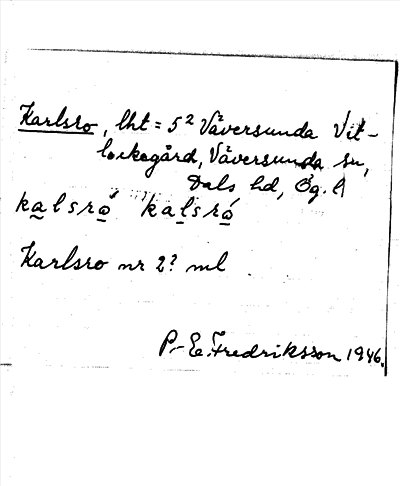 Karlsro, lht = 5² Väversunda Vit-
lockegård, Väversunda sn,
Dals hd, Ög. l
kalsró kalsró
Karlsro nr 2? ml
P.-E. Fredriksson 1946.